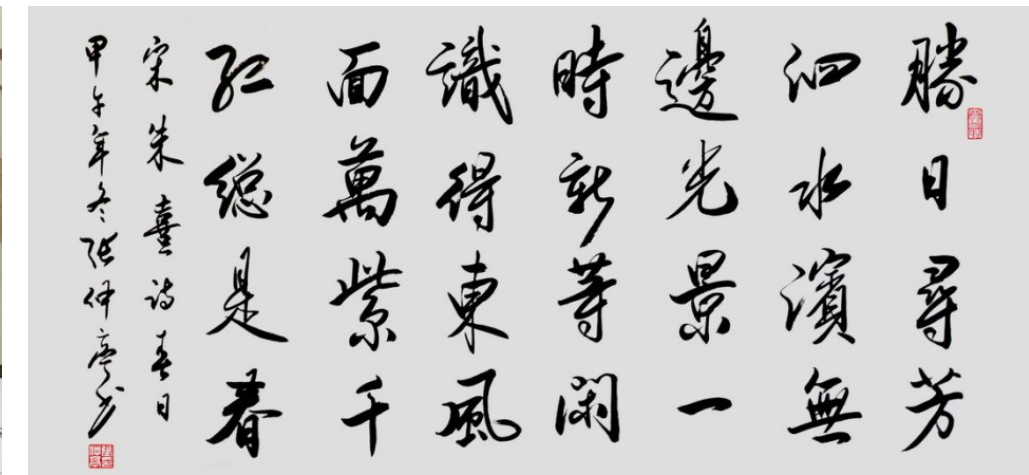 勝日尋芳
泗水濱無
邊光景一
時新等閑
識得東風
面萬紫千
紅總是春
宋朱熹詩春日
甲午年冬張仲亭書